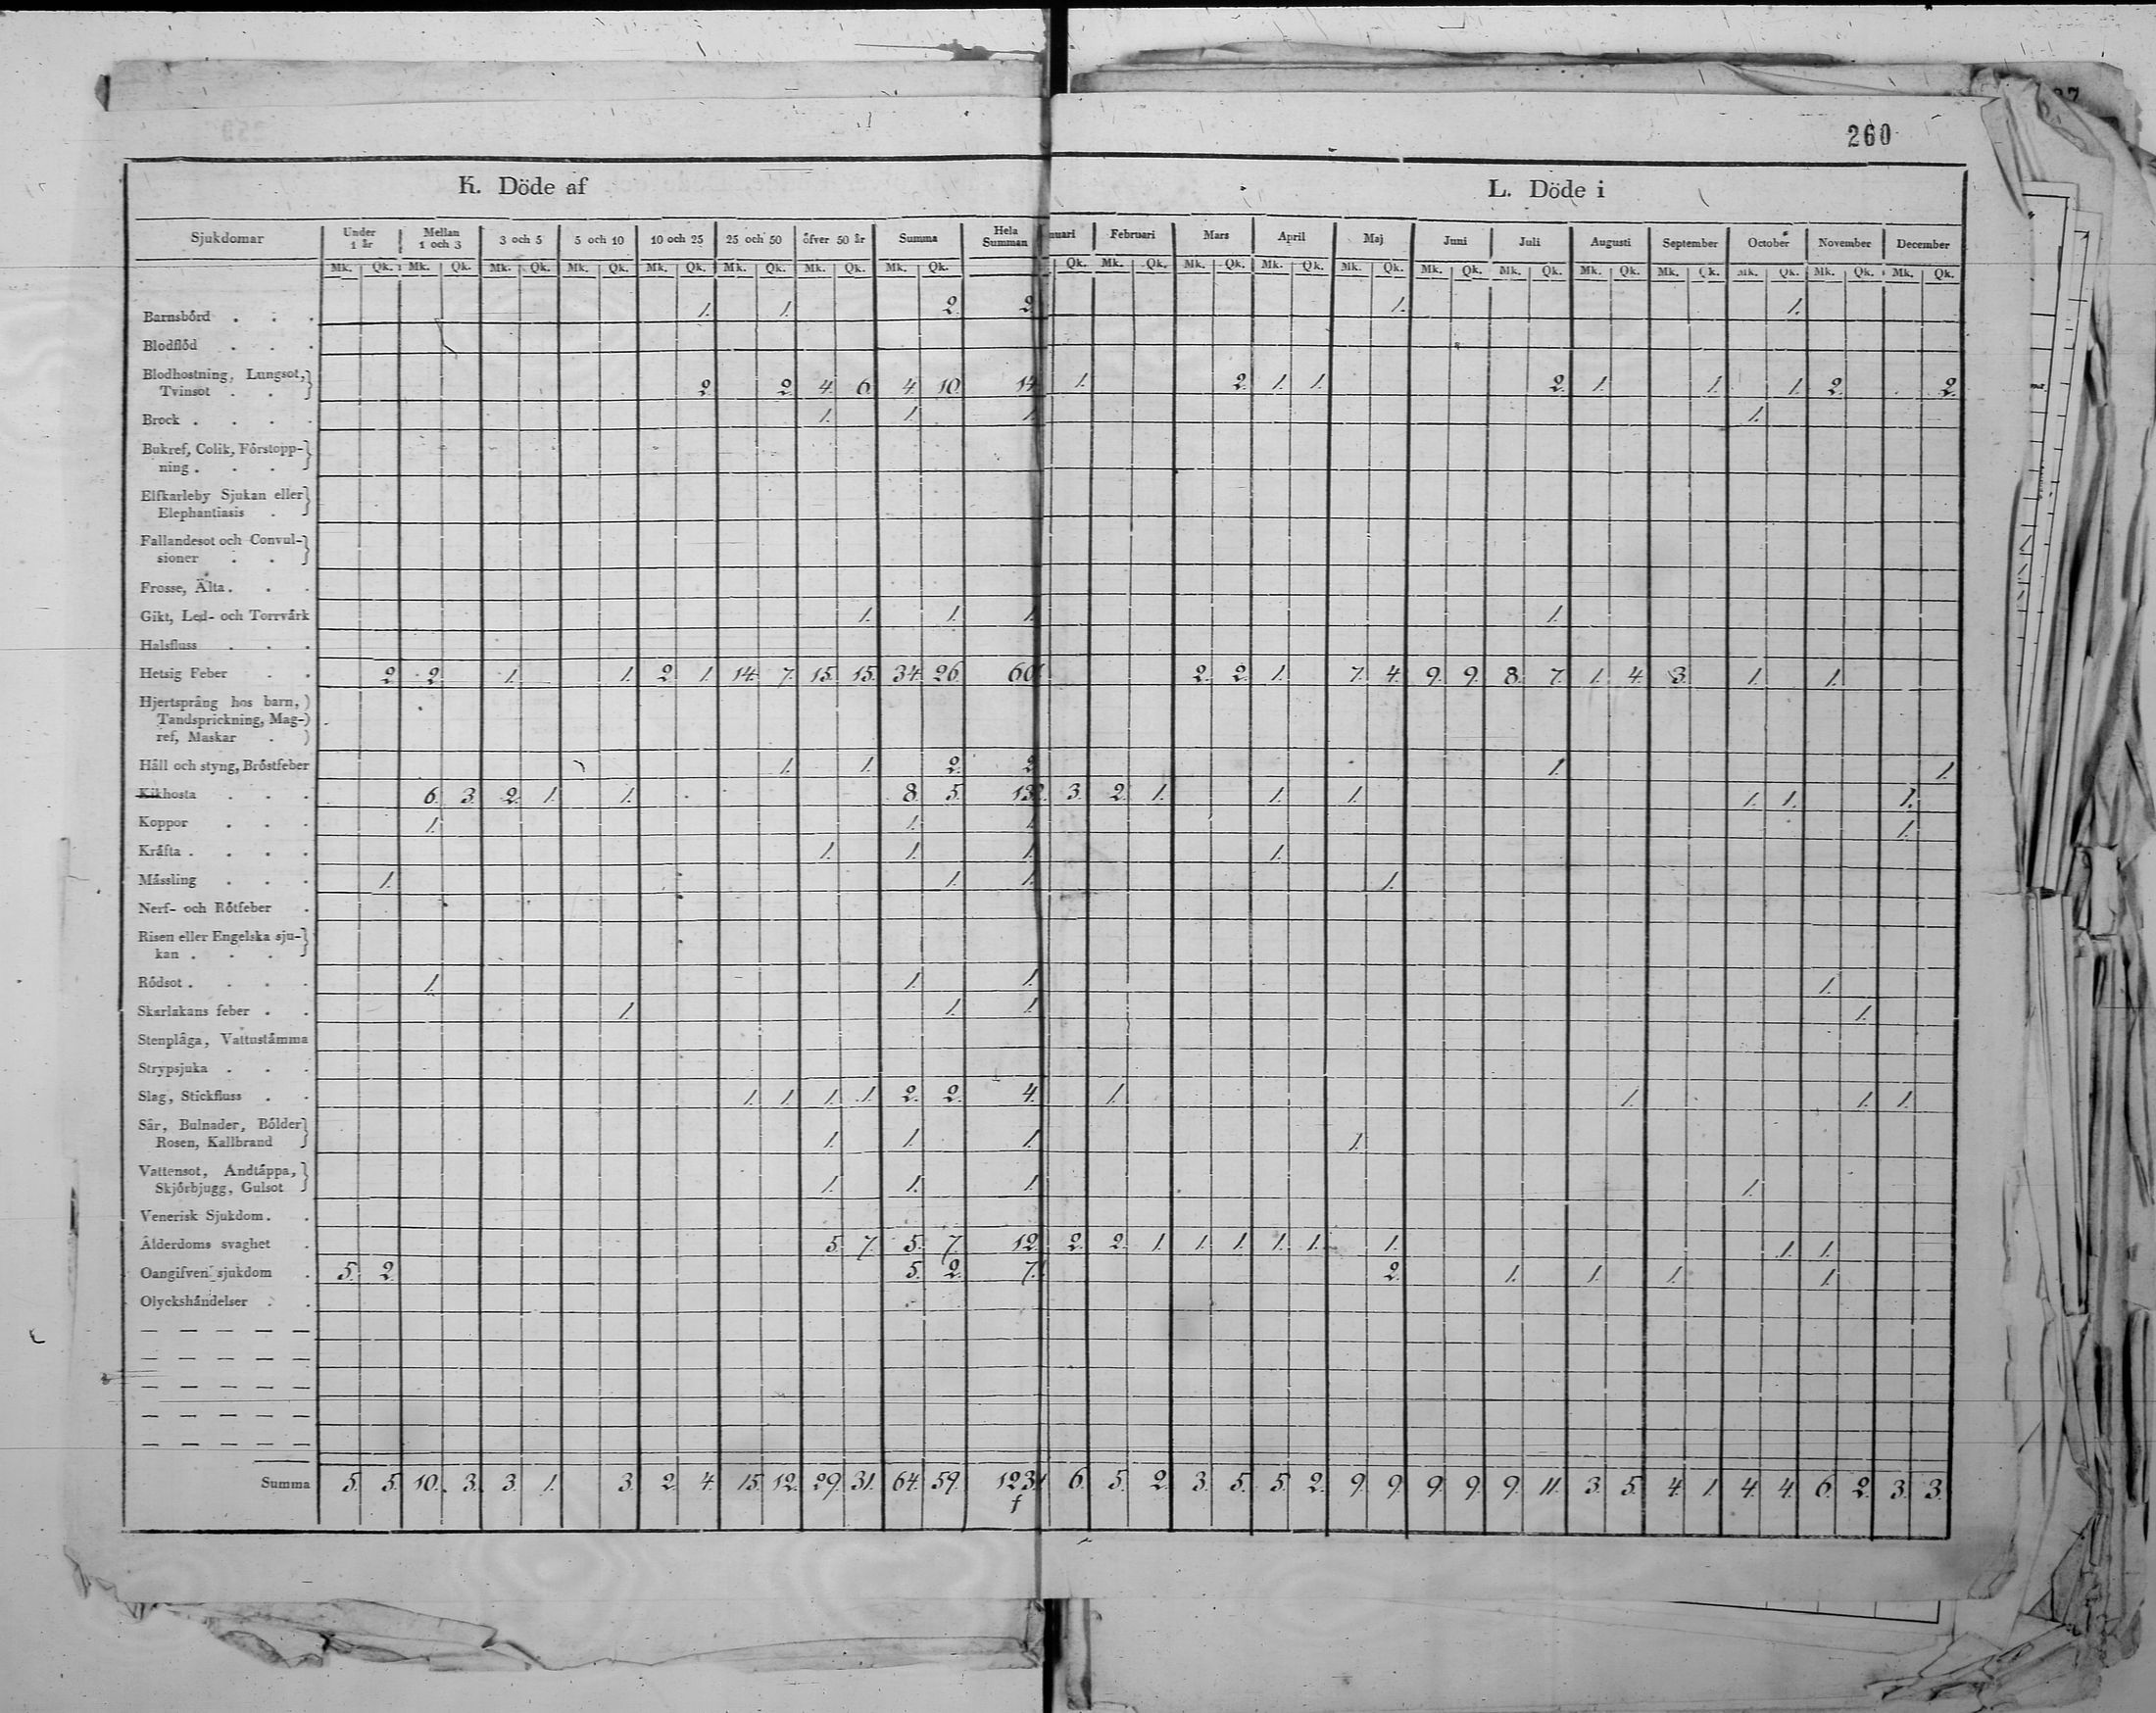 260
K. Döde af
L. Döde i
Sjukdomar Under 1 år Mellan 1 och 3 3 och 5 5 och 10 10 och 25 25 och 50 öfver 50 år Summa Hela Summan nuari Februari Mars April Maj Juni Juli Augusti September October November December
Mk. Qk. Mk. Qk. Mk. Qk. Mk. Qk. Mk. Qk. Mk. Qk. Mk. Qk. Mk. Qk. Qk. Mk. Qk. Mk. Qk. Mk. Qk. Mk. Qk. Mk. Qk. Mk. Qk. Mk. Qk. Mk. Qk. Mk. Qk. Mk. Qk. Mk. Qk.
Barnsbörd . . . 1. 1. 2. 2. 1. 1.
Blodflöd . . .
Blodhostning, Lungsot,
Tvinsot . . 2. 2. 4. 6. 4. 10. 14 1. 2. 1. 1. 2. 1. 1. 1. 2. 2.
Brock . . . . 1. 1. 1. 1.
Bukref, Colik, Förstopp-
ning . . .
Elfkarleby Sjukan eller
Elephantiasis .
Fallandesot och Convul-
sioner . .
Frosse, Älta . . .
Gikt, Led- och Torrvärk 1. 1. 1. 1.
Halsfluss . . .
Hetsig Feber . . 2. 2. 1. 1. 2. 1. 14. 7. 15. 15. 34. 26. 60. 2. 2. 1. 7. 4. 9. 9. 8. 7. 1. 4. 3. 1. 1.
Hjertsprång hos barn,
Tandsprickning, Mag-
ref, Maskar .
Håll och styng, Bröstfeber 1. 1. 2. 2. 1. 1.
Kikhosta . . . 6. 3. 2. 1. 1. 8. 5. 13. 3. 2. 1. 1. 1. 1. 1. 1.
Koppor . . . 1. 1. 1. 1.
Kräfta . . . . 1. 1. 1. 1.
Mässling . . . 1. 1. 1. 1.
Nerf- och Rötfeber .
Risen eller Engelska sju-
kan . . .
Rödsot . . . . 1. 1. 1. 1.
Skarlakans feber . . 1. 1. 1. 1.
Stenplåga, Vattustämma
Strypsjuka . . .
Slag, Stickfluss . . 1. 1. 1. 1. 2. 2. 4. 1. 1. 1. 1.
Sår, Bulnader, Bölder
Rosen, Kallbrand 1. 1. 1. 1.
Vattensot, Andtäppa,
Skjörbjugg, Gulsot 1. 1. 1. 1.
Venerisk Sjukdom . .
Ålderdoms svaghet . 5. 7. 5. 7. 12. 2. 2. 1. 1. 1. 1. 1. 1. 1. 1.
Oangifven sjukdom . 5. 2. 5. 2. 7. 2. 1. 1. 1. 1.
Olyckshändelser . .
Summa 5. 5. 10. 3. 3. 1. 3. 2. 4. 15. 12. 29. 31. 64. 59. 123. 6. 5. 2. 3. 5. 5. 2. 9. 9. 9. 9. 9. 11. 3. 5. 4. 1. 4. 4. 6. 2. 3. 3.